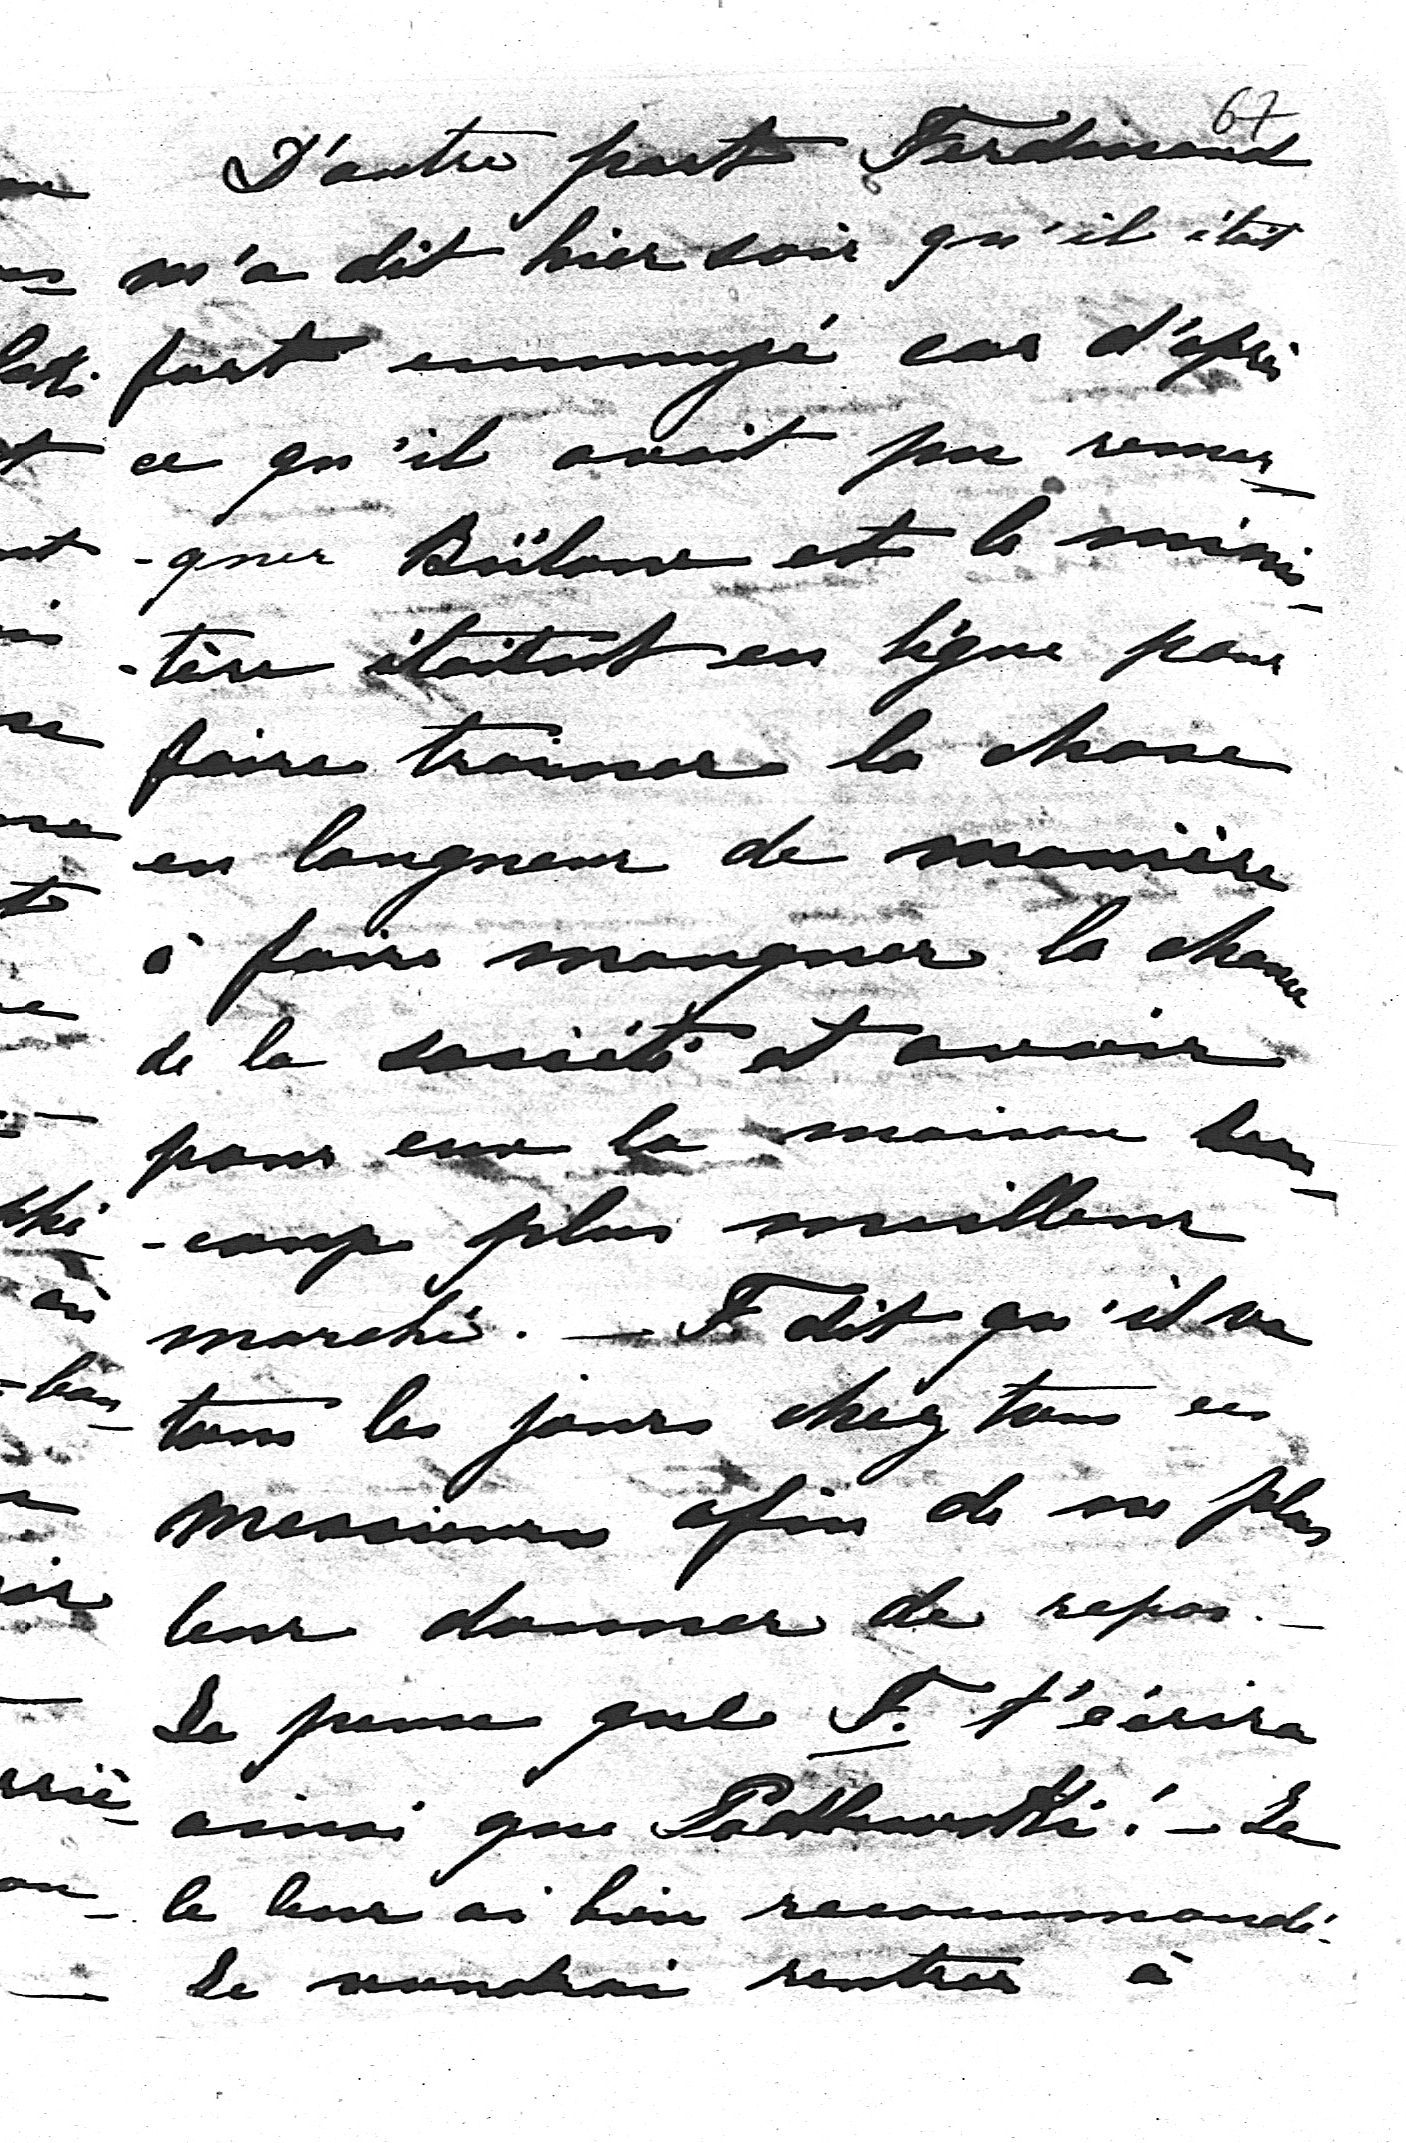 67
D'autre part Ferdinand
m'a dit hier soir qu'il était
fort ennuyé car d'après
ce qu'il avait pu remar_
-quer Bülow et le minis_
-tère étaient en ligne pour
faire trainer la chose
en longueur de manière
à faire manquer la chance
de la société et avoir
pour eux la maison beau_
-coup plus meilleur
marché. — F dit qu'il va
tous les jours chez tous ces
messieurs afin de ne plus
leur donner de repos. —
Je pense que F. t'écrira
ainsi que ! — Je
le leur ai bien recommandé.
Je voudrai rentrer à